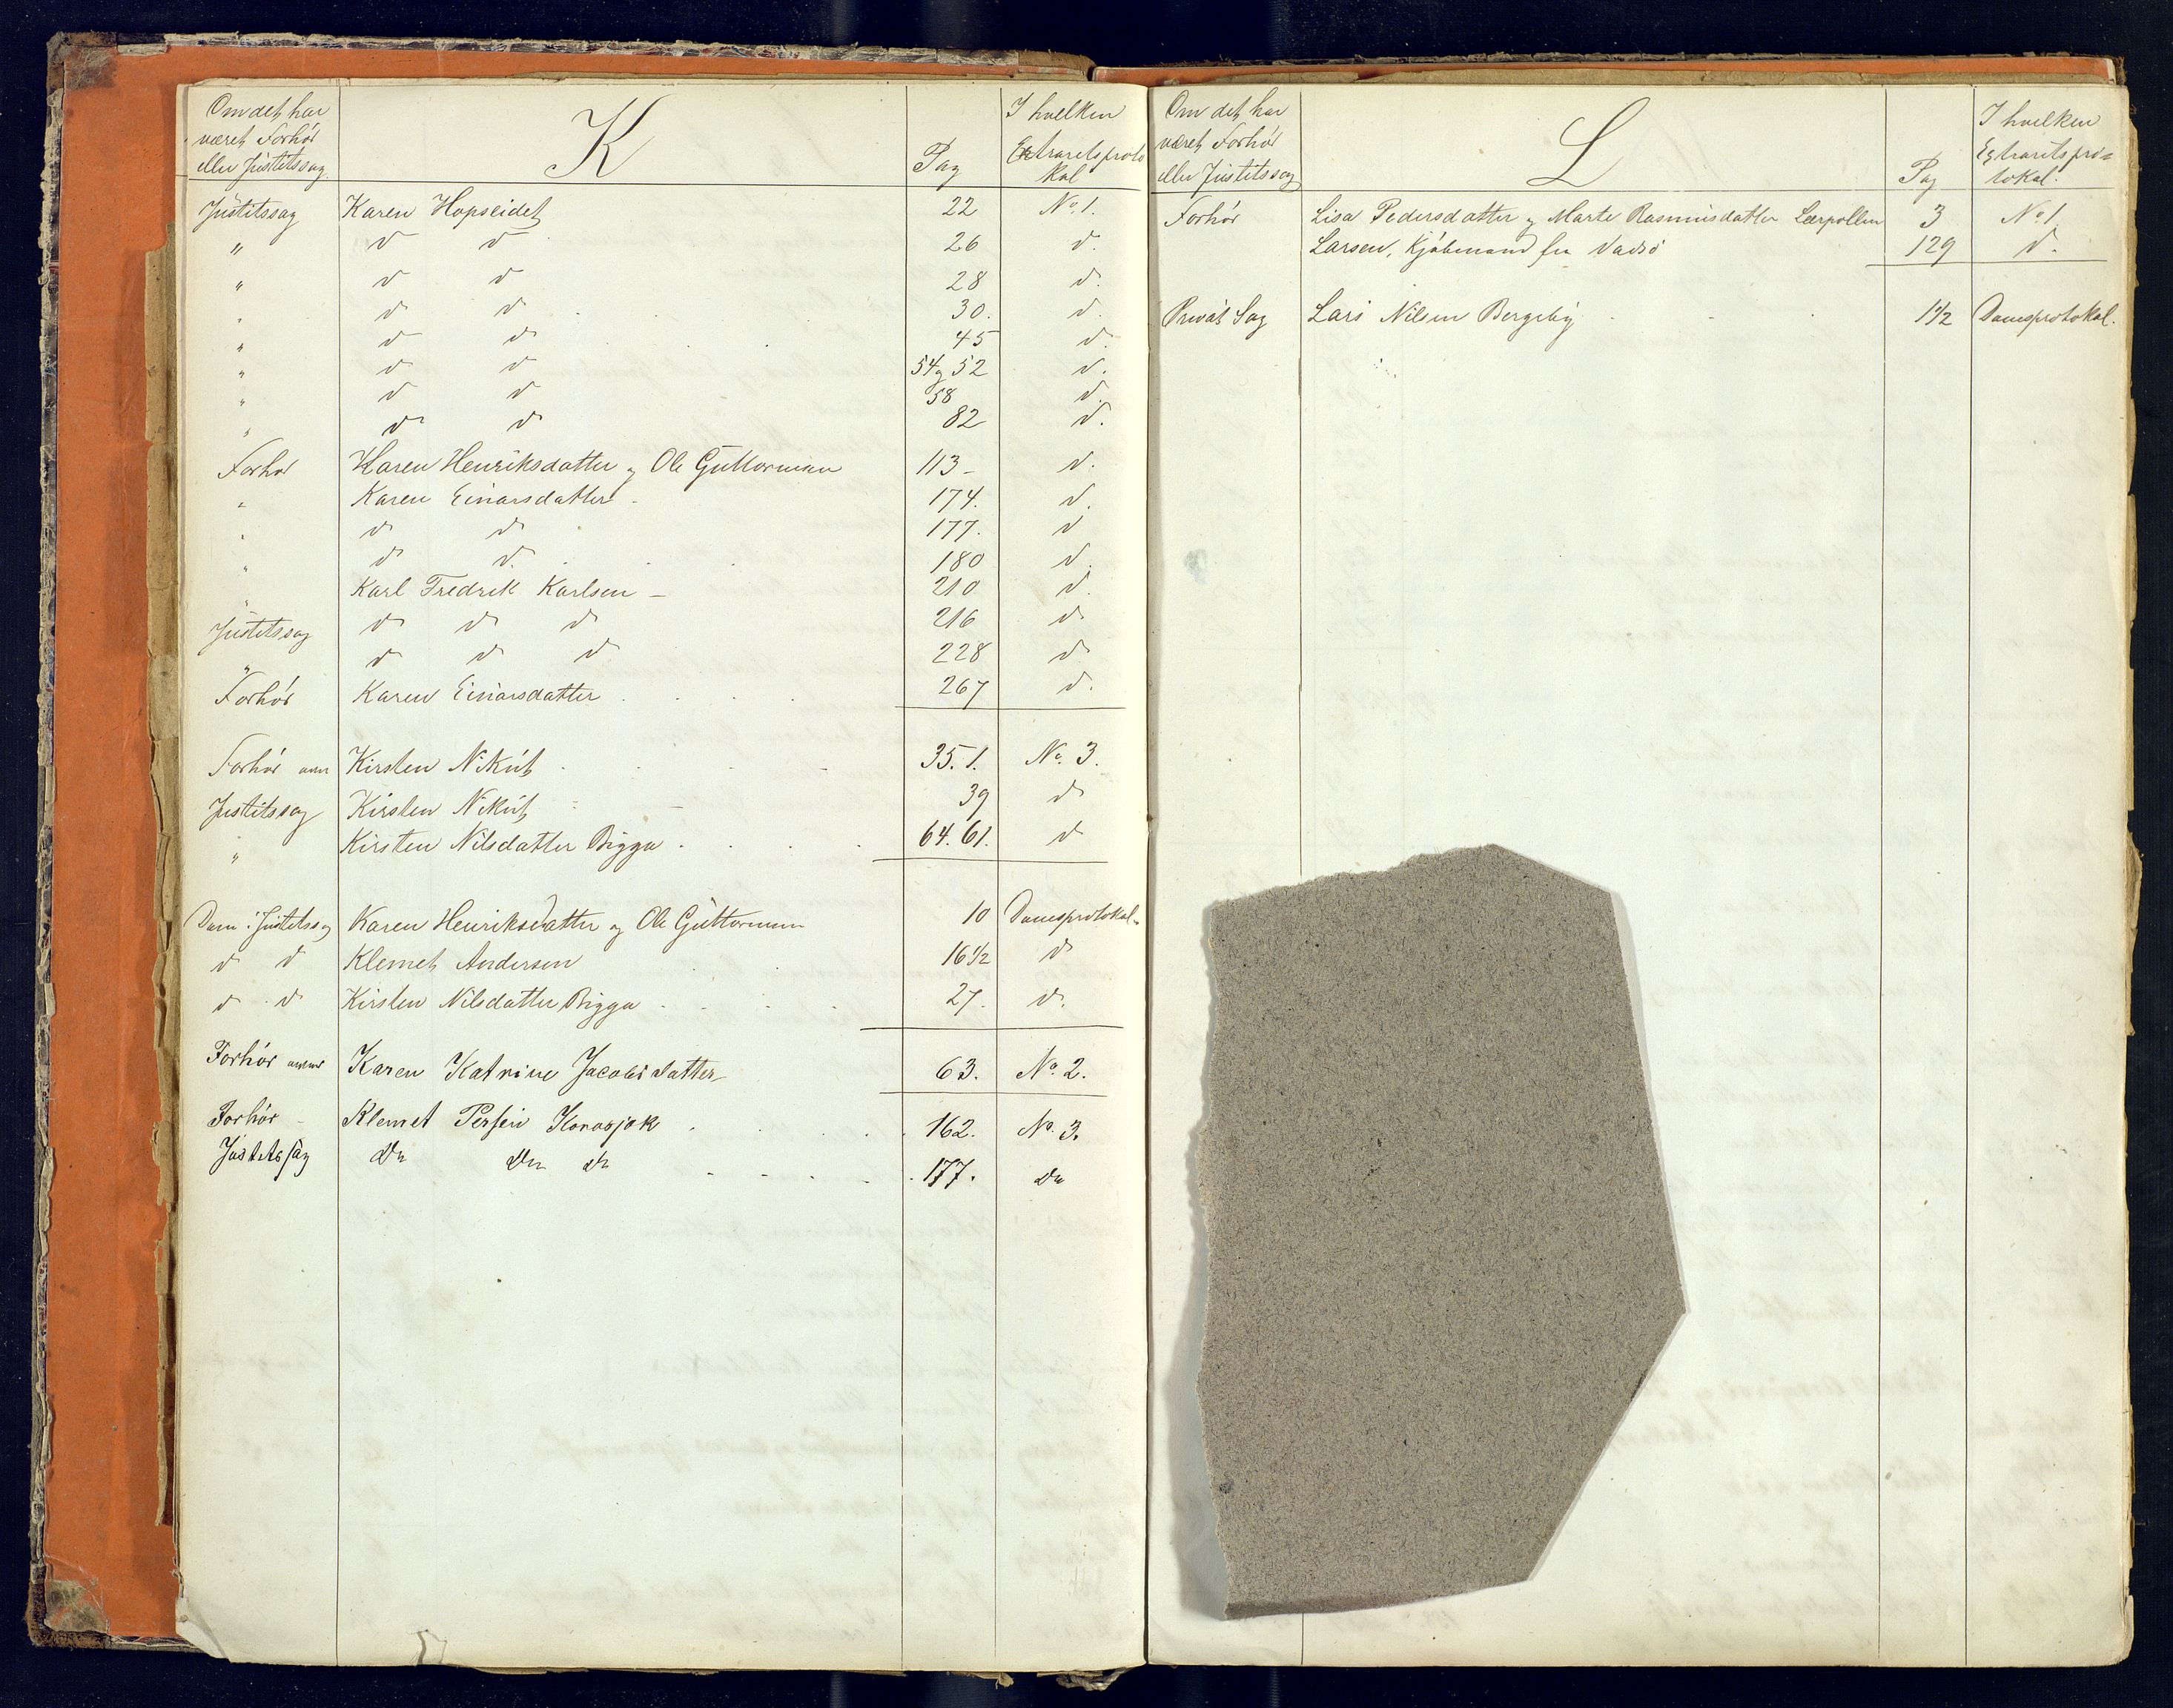 Om det har
været Forhör
eller Justitssag.
K
Pag
I hvelken
Extraretsproto
kol
Justitssag Karen Hopseidet 22 No. 1.
" do do 26 do.
" do do 28 do.
" do do 30. do.
" do do 45 do.
" do do 54 og 52 do.
" do do 58 do.
" do do 82 do.
Forhör Karen Henriksdatter og Ole Guttormsen 113- do.
" Karen Einarsdatter - 174. do.
" do do 177. do
" do do. 180 do.
" Karl Fredrik Karlsen - 210 do.
Justitssag do do do 216 do
" do do do 228 do
Forhör Karen Einarsdatter 267 do.
Forhör Kirsten Nikut 35.1. No. 3.
Justitssag Kirsten Nikut 39 do
" Kirsten Nilsdatter Bigga 64.61. do
Dom i Justitssag Karen Henriksdatter og Ole Guttormsen 10 Domsprotokol.
do do Klemet Andersen 16 1/2 do
do do Kirsten Nilsdatter Bigga 27. do.
Forhör Karen Katrine Jacobsdatter 63. No. 2.
Forhör - Klemet Persen Karasjok 162. No. 3.
Justitssag Do Do do 177. Do
Om det har
været Forhör
eller Justitssag
L
Pag
I hvelken
Extraretspro=
tokol.
Forhör Lisa Pedersdatter og Marte Rasmusdatter Leerpollen 3 No 1.
Larsen, Kjöbmand fra Vadsö 129 do.
Privat Sag Lars Nilsen Bergeby 1 1/2 Domsprotokol.